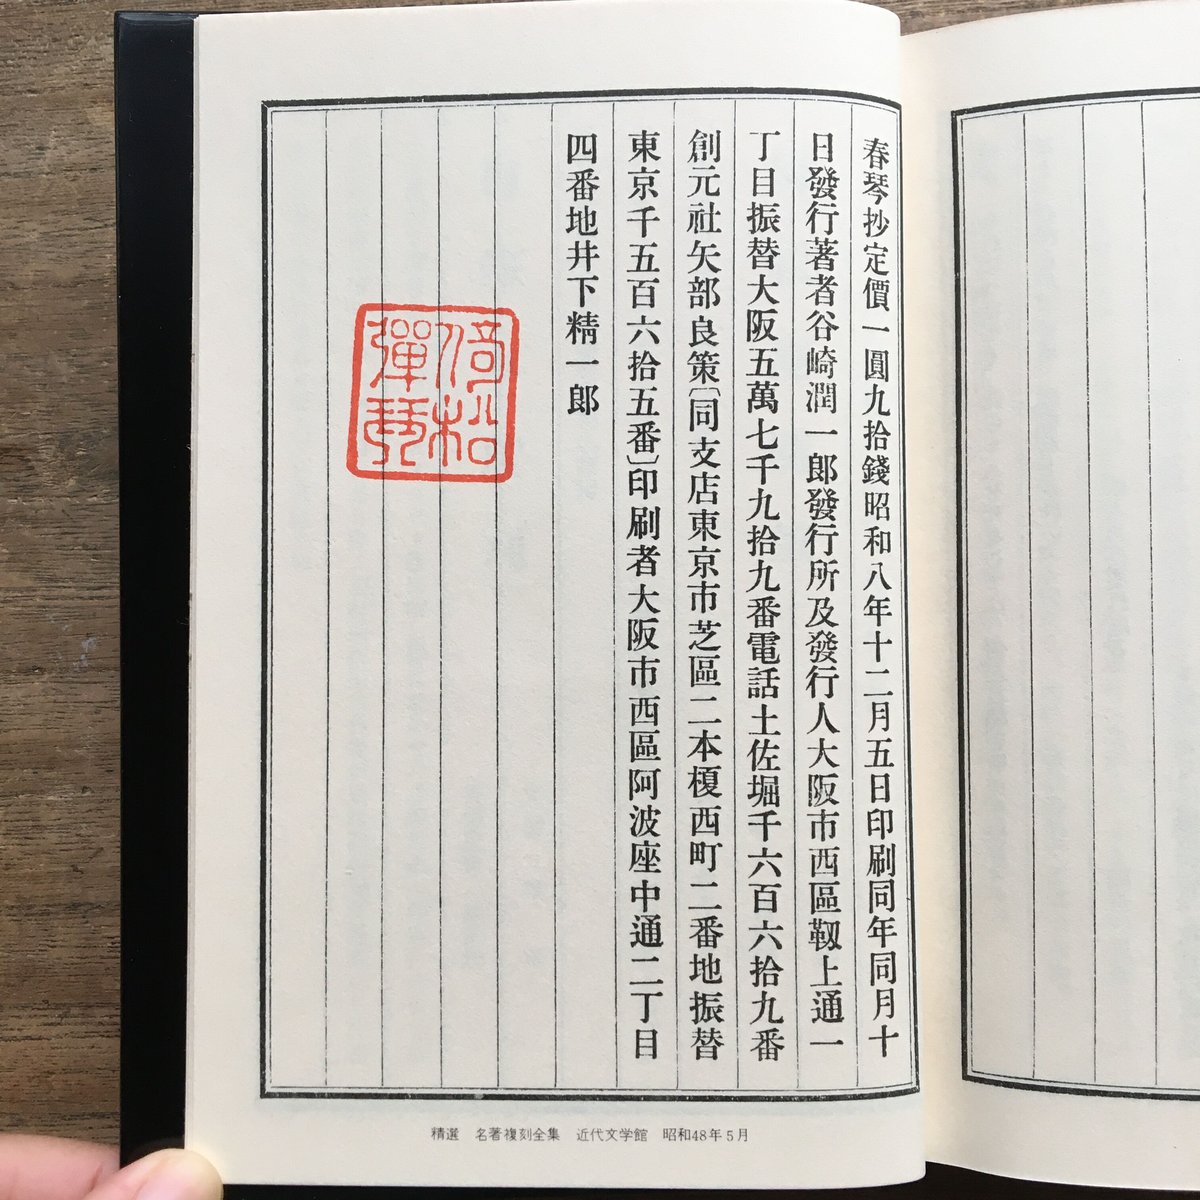 春琴抄定價一圓九拾錢昭和八年十二月五日印刷同年同月十
日發行著者谷崎潤一郎發行所及發行人大阪市西區靱上通一
丁目振替大阪五萬七千九拾九番電話土佐堀千六百六拾九番
創元社矢部良策〔同支店東京市芝區二本榎西町二番地振替
東京千五百六拾五番〕印刷者大阪市西區阿波座中通二丁目
四番地井下精一郎
倚松
彈琴
精選　名著複刻全集　近代文学館　昭和48年5月